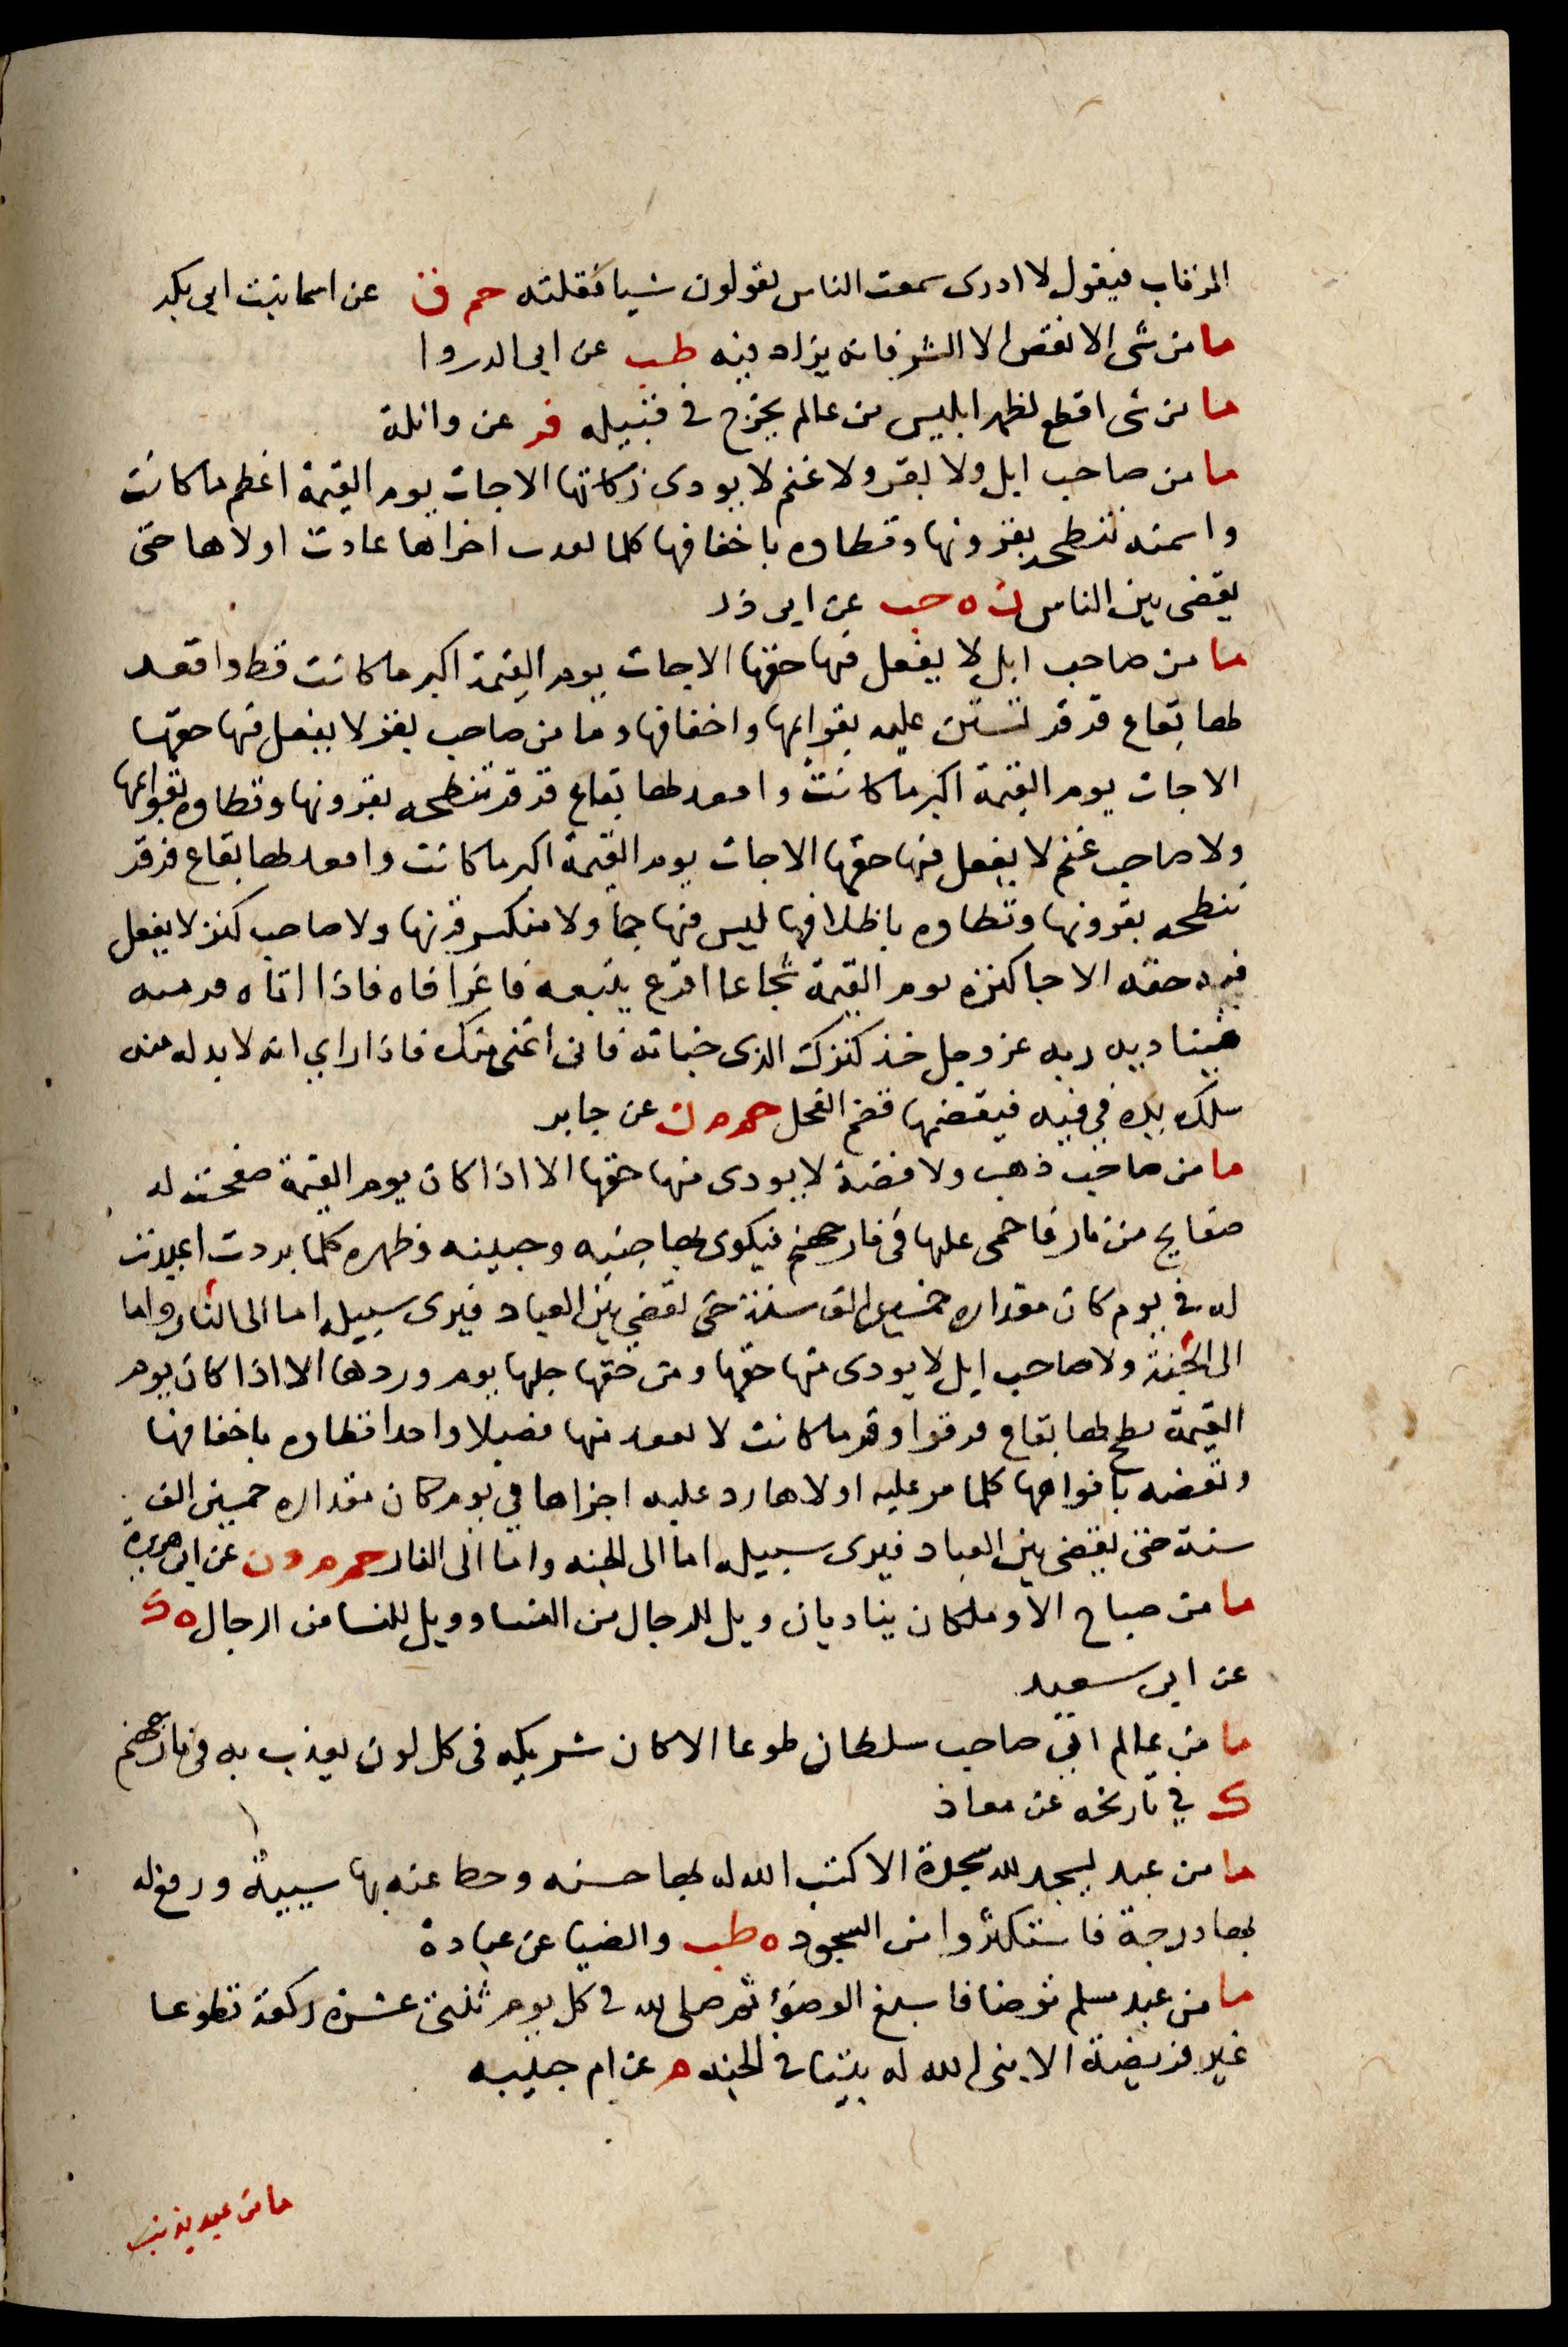 المرتاب فيقول لا ادرى سمعت الناس يقولون شيا فقلته حم ق عن اسما بنت ابى بكر
ما من شى الا نقص الا الشر فانه يزاد فيه طب عن ابى الدردا
ما من شى اقطع لظهر ابليس من عالم يخرج فى قبيله فر عن واثلة
ما من صاحب ابل ولا بقر ولا غنم لا يودى زكاتها الا جات يوم القيمة اعظم ما كانت
واسمنه تنطحه بقرونها وتطاوه باخفافها كلما نفدت اخراها عادت اولاها حتى
يقضى بين الناس ن ه حب عن ابى ذر
ما من صاحب ابل لا يفعل فيها حقها الا جات يوم القيمة اكبر ما كانت قط واقعد
لها بقاع قرقر تستن عليه بقوايمها واخفافها وما من صاحب بقر لا يفعل فيها حقها
الا جات يوم القيمة اكبر ما كانت واقعد لها بقاع قرقر تنطحه بقرونها وتطاوه بقوايمها
ولا صاحب غنم لا يفعل فيها حقها الا جات يوم القيمة اكبر ما كانت واقعد لها بقاع قرقر
تنطحه بقرونها وتطاوه باظلافها ليس فيها جما ولا منكسر قرنها ولا صاحب كنز لا يفعل
فيه حقه الا جا كنزه يوم القيمة شجاعا اقرع يتبعه فاغرا فاه فاذا اتاه فر منه
فيناديه ربه عز وجل خذ كنزك الذى خباته فانى اغنى منك فاذا راى انه لا بد له منه
سلك يده فى فيه فيقضمها قضم الفحل حم م ن عن جابر
ما من صاحب ذهب ولا فضة لا يودى منها حقها الا اذا كان يوم القيمة صفحت له
صفايح من نار فاحمى عليها فى نار جهنم فيكوى بها جنبه وجبينه وظهره كلما بردت اعيدت
له فى يوم كان مقداره خمسين الف سنة حتى يقضى بين العباد فيرى سبيله اما الى النار واما
الى الجنة ولا صاحب ابل لا يودى منها حقها ومن حقها حلبها يوم وردها الا اذا كان يوم
القيمة بطح لها بقاع قرقر اوفر ما كانت لا يفقد منها فصيلا واحدا تطاوه باخفافها
وتعضه بافواهها كلما مر عليه اولاها رد عليه اخراها فى يوم كان مقداره خمسين الف
سنة حتى يقضى بين العباد فيرى سبيله اما الى الجنه واما الى النار حم م د ن عن ابى هريرة
ما من صباح الا وملكان يناديان ويل للرجال من النسا وويل للنسا من الرجال ه ك
عن ابى سعيد
ما من عالم اتى صاحب سلطان طوعا الا كان شريكه فى كل لون يعذب به فى نار جهنم
ك فى تاريخه عن معاذ
ما من عبد يسجد لله سجدة الا كتب الله له بها حسنه وحط عنه بها سيية ورفع له
بها درجة فاستكثروا من السجود ه طب والضيا عن عبادة
ما من عبد مسلم توضا فاسبغ الوضوء ثم صلى لله فى كل يوم ثنتى عشرة ركعة تطوعا
غير فريضة الا بنى الله له بيتا فى الجنه م عن ام حبيبه
ما من عبد يذنب